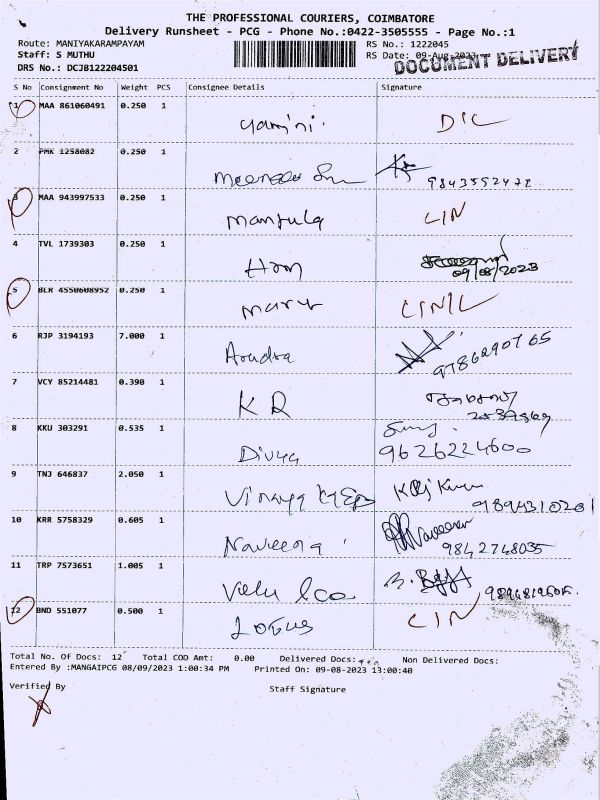 THE PROFESSIONAL COURIERS, COIMBATORE
Delivery Runsheet - PCG - Phone No.:0422-3505555 - Page No.:1
Route: MANIYAKARAMPAYAM RS No.: 1222045
Staff: S MUTHU RS Date: 09-Aug-2023
DOCUMENT DELIVERY
DRS No.: DCJB122204501
S No Consignment No Weight PCS Consignee Details Signature
1 MAA 861060491 0.250 1 Yamini. D/C
2 PMK 1258082 0.250 1 9843552472
3 MAA 943997533 0.250 1 Manjula C/N
4 TVL 1739303 0.250 1 09/08/2023
5 BLR 4550608952 0.250 1
6 RJP 3194193 7.000 1 Arudra 9786290765
7 VCY 85214481 0.390 1 K R
8 KKU 303291 0.535 1 Divya 9626224600
9 TNJ 646837 2.050 1 Vinaya
10 KRR 5758329 0.605 1 Naveena Naveena 9842748035
11 TRP 7573651 1.005 1
12 BND 551077 0.500 1 Lotus C/N
Total No. Of Docs: 12 Total COD Amt: 0.00 Delivered Docs: Non Delivered Docs:
Entered By :MANGAIPCG 08/09/2023 1:00:34 PM Printed On: 09-08-2023 13:00:40
Verified By Staff Signature